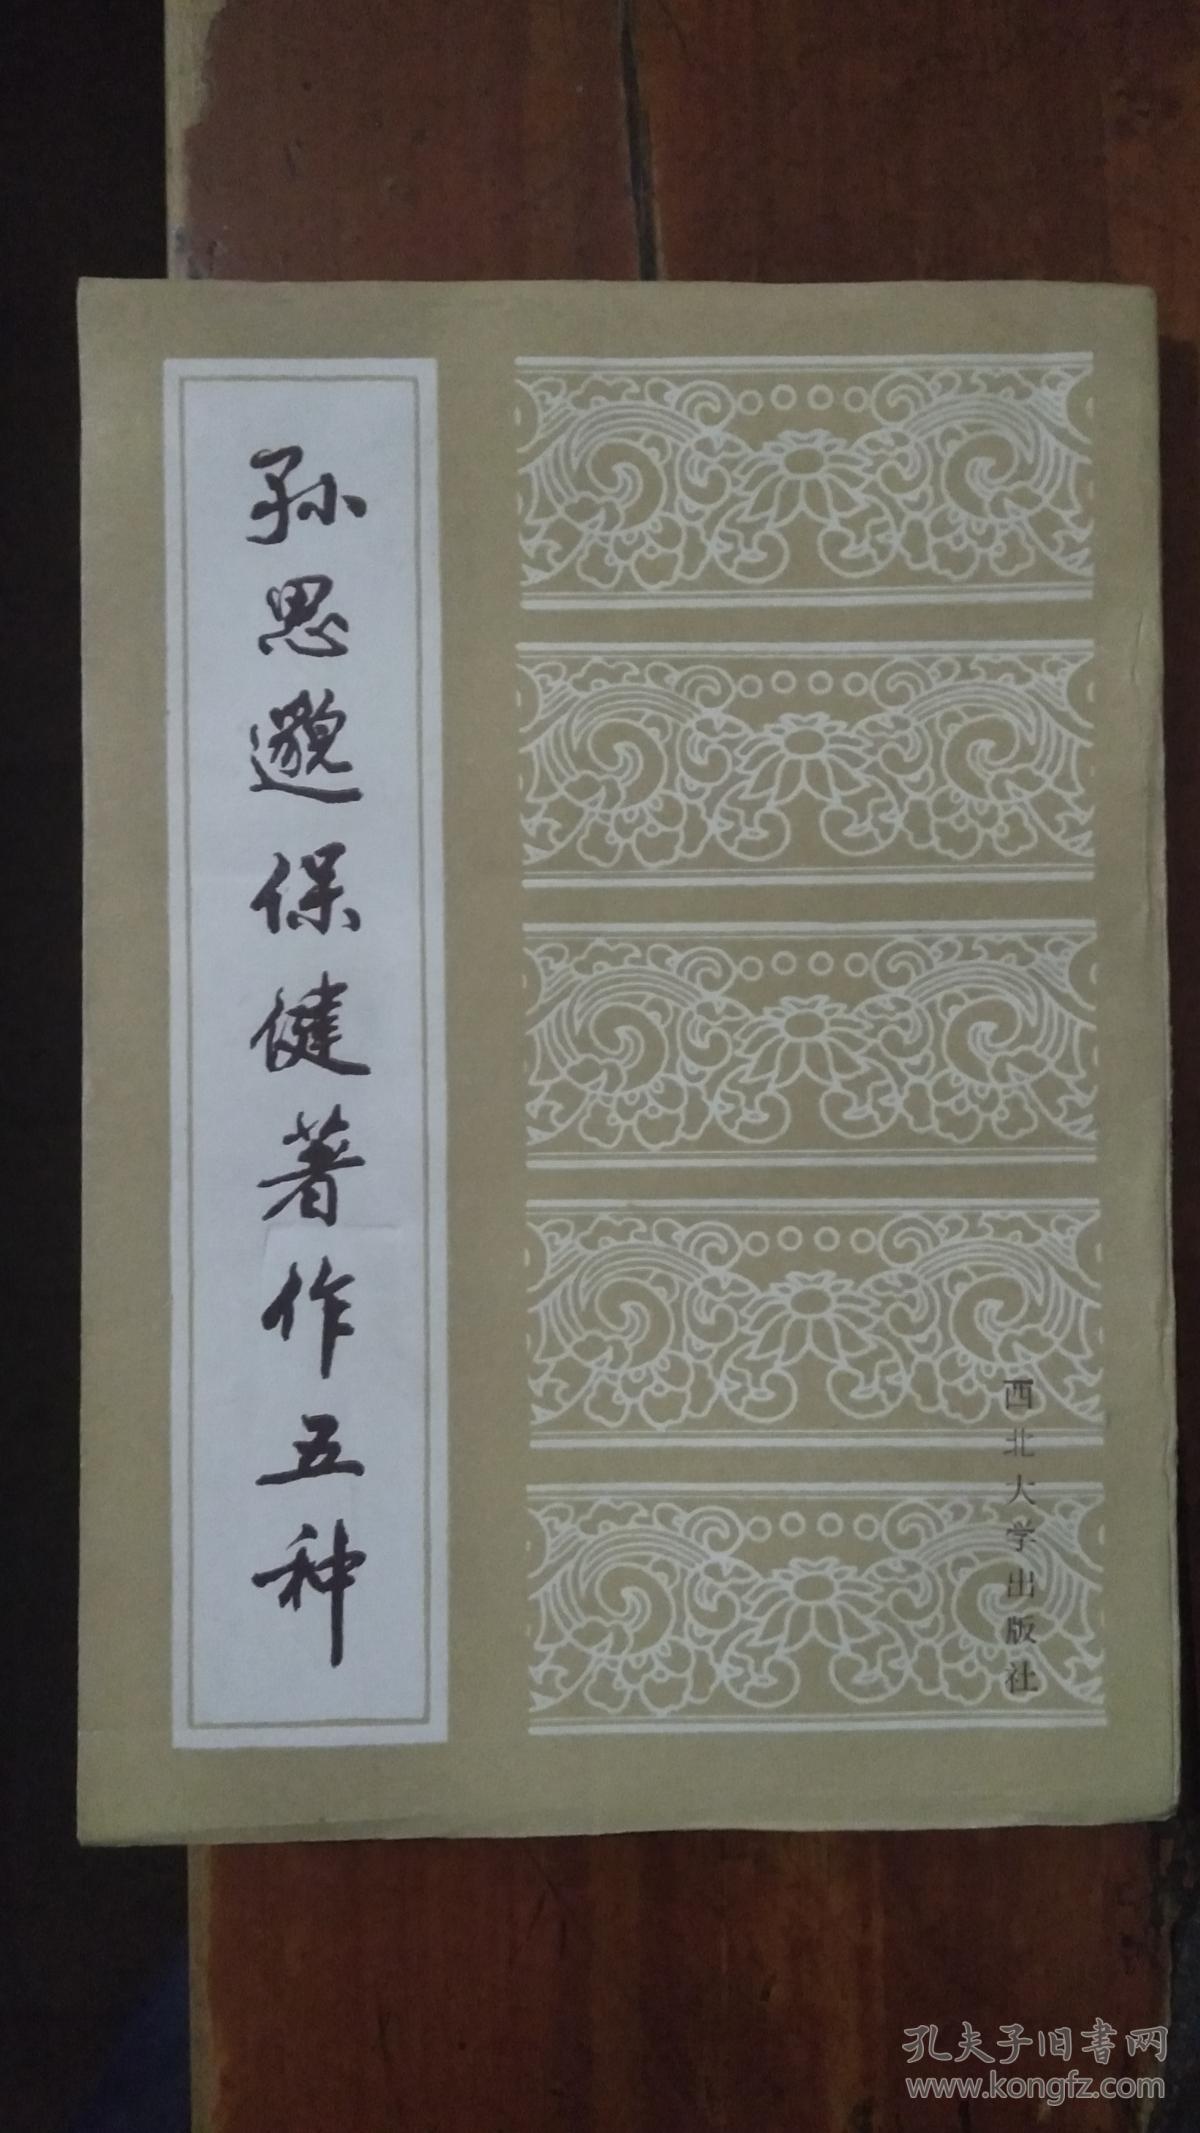 孙思邈保健著作五种
西北大学出版社
孔夫子旧书网
www.kongfz.com